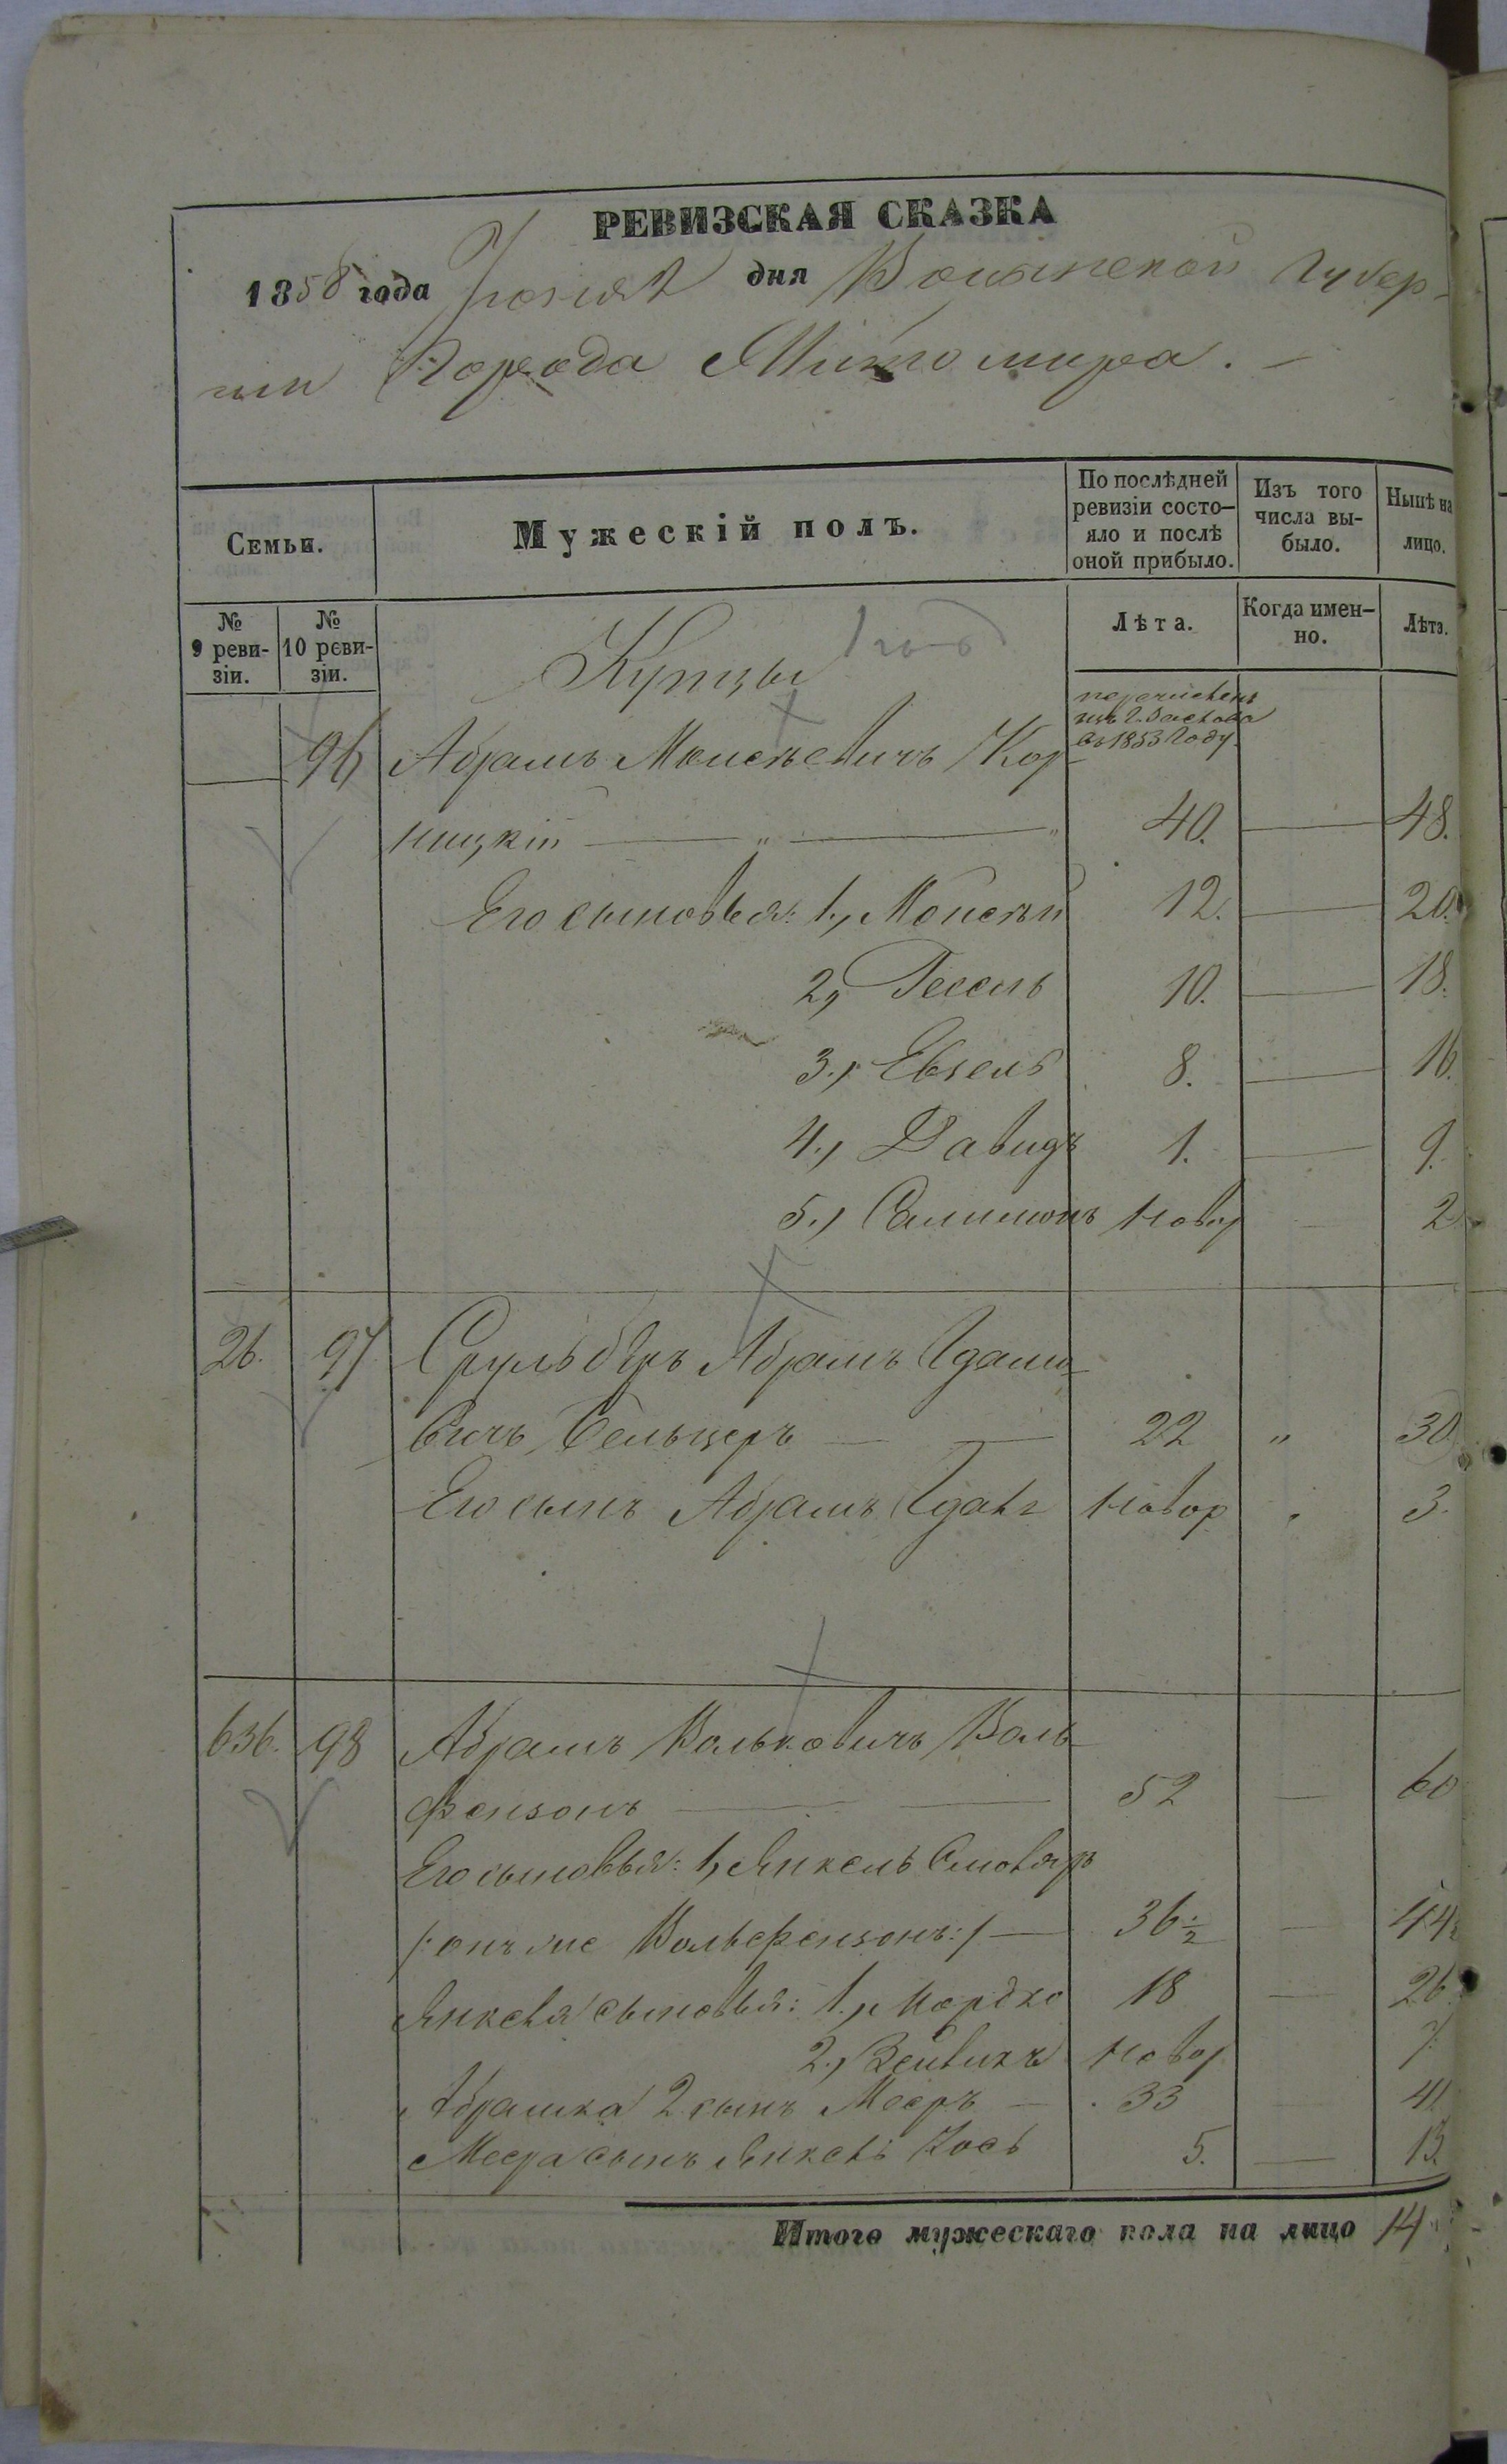 РЕВИЗСКАЯ СКАЗКА
1858 года Іюня дня Волынской Губер-
ніи Города Житомира. -
Семьи.
Мужескій полъ.
По послѣдней ревизіи состояло и послѣ оной прибыло.
Изъ того числа выбыло.
Нынѣ на лицо.
№ 9 ревизіи.
№ 10 ревизіи.
Лѣта.
Когда именно.
Лѣта.
Купцы
перечисленъ
изъ
въ 1853 году.
96 Абрамъ Моисѣевичъ Кор-
ницкій — „ — „ 40. — 48.
Его сыновья: 1., Моисѣй 12. — 20.
2, Гессель 10. — 18.
3., Евзель 8. — 16.
4., Давидъ 1. — 9.
5., новор — 2
26. 97 Срульберъ Абрамъ
вичъ Сельцеръ — — 22 „ 30
Его сынъ Абрамъ новор „ 3.
636. 98 Абрамъ Вольковичъ Воль-
фензонъ — — 52 — 60
Его сыновья: 1, Янкель Смоляръ
/: онъ же Вольфензонъ :/ — 36 ½ — 44½
Янкеля сыновья: 1., Мордко 18 — 26
2., Зейвикъ новор 7.
Абрамка 2 сынъ Мееръ — 33 41
Меера сынъ Янкель Іось 5. — 13.
Итого мужескаго пола на лицо 14